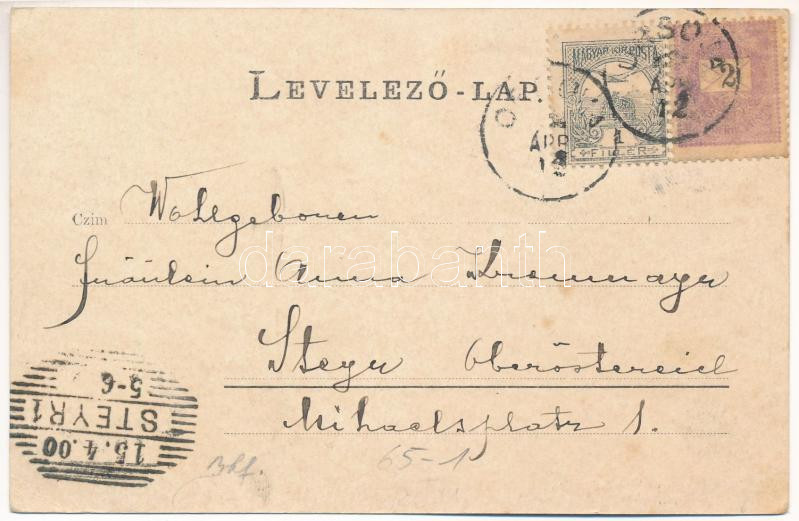 LEVELEZŐ-LAP.
MAGYAR KIR. POSTA
1
FILLÉR
2
ORSOVA
APR
12
APR
12
Czim
Wohlgeboren
Fräulein Anna
Steyr Oberöstereich
Mihaelsplatz 1.
15.4.00
STEYR 1
5-6
65-1
darabanth